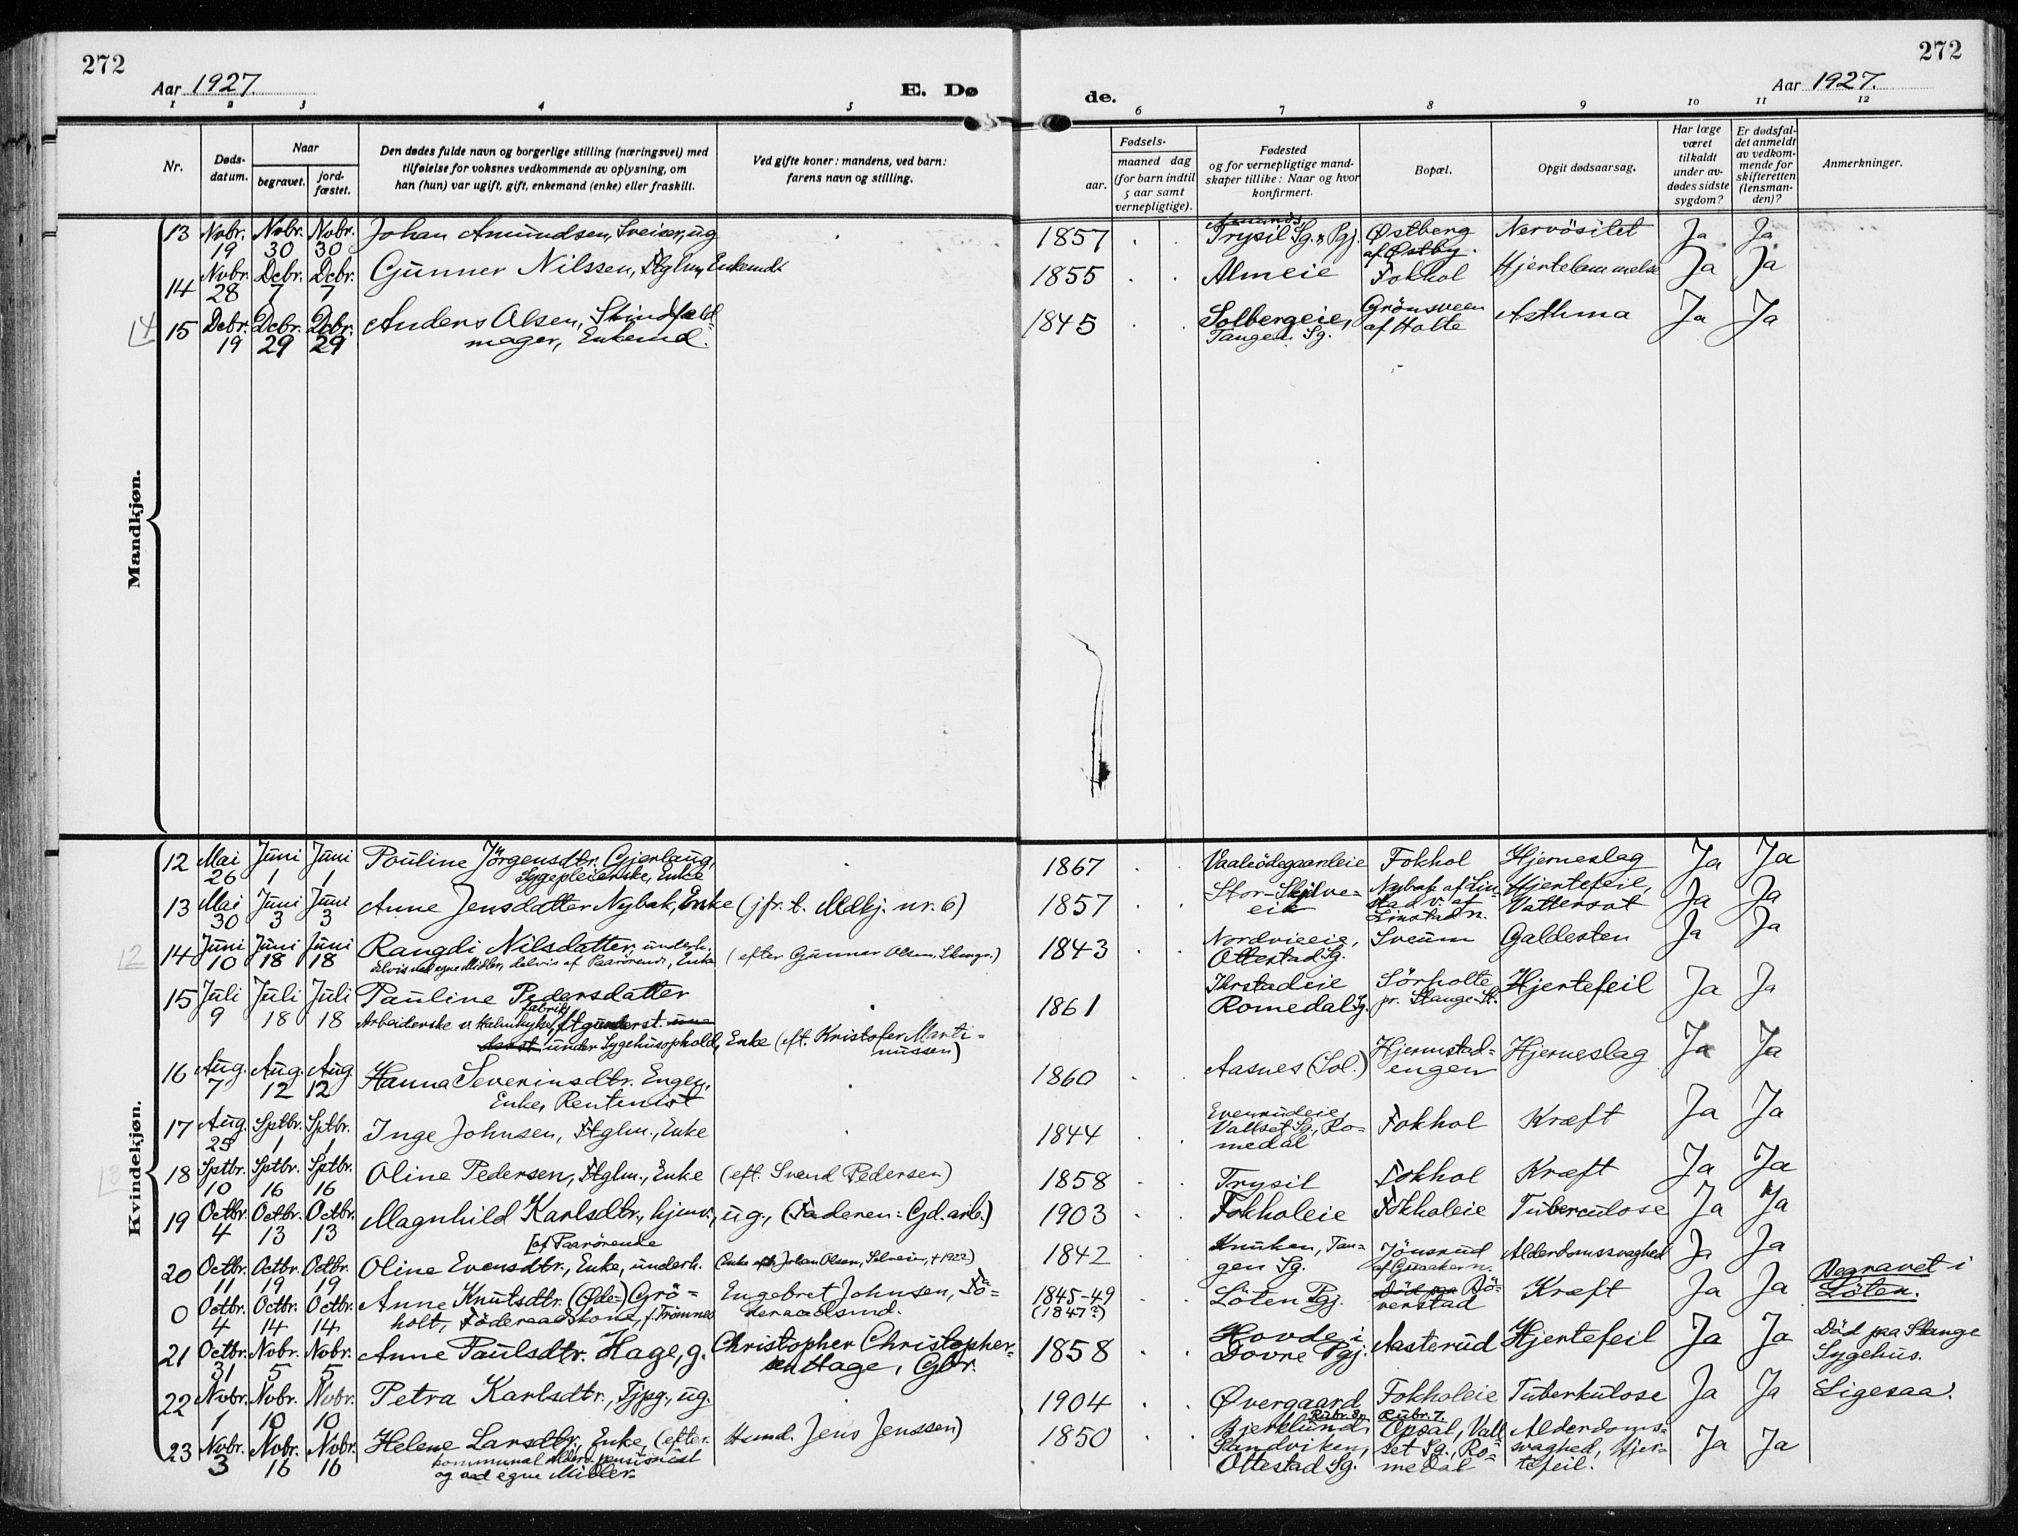 272
Aar 1927.
E. Dø
de.
272
Aar 1927.
1 2 3 4 5 6 7 8 9 10 11 12
Nr.
Døds-
datum.
Naar
begravet.
jord-
fæstet.
Den dødes fulde navn og borgerlige stilling (næringsvei) med
tilføielse for voksnes vedkommende av oplysning, om
han (hun) var ugift, gift, enkemand (enke) eller fraskilt.
Ved gifte koner: mandens, ved barn:
farens navn og stilling.
Fødsels-
aar.
maaned dag
(for barn indtil
5 aar samt
vernepligtige).
Fødested
og for vernepligtige mand-
skaper tillike: Naar og hvor
konfirmert.
Bopæl.
Opgit dødsaarsag.
Har læge
været
tilkaldt
under av-
dødes sidste
sygdom?
Er dødsfal-
det anmeldt
av vedkom-
mende for
skifteretten
(lensman-
den)?
Anmerkninger.
Mandkjøn.
13 Nvbr. 19 Nvbr. 30 Nvbr. 30 Johan Amundsen, Sveiser, ug 1857 Trysil Sg. & Pgj. Østberg af Østby. Nervösitet Ja Ja
14 Nvbr. 28 Dcbr. 7 Dcbr. 7 Gunner Nilssen, Ftglm, Enkemd. 1855 Almeie Fokhol Hjertelammelse Ja Ja
14
15 Dcbr. 19 Dcbr. 29 Dcbr. 29 Anders Olsen, Skindfeld-
mager, Enkemd. 1845 Solbergeie, Tangen Sg. Grönsveen af Holte Asthma Ja Ja
Kvindekjøn.
12 Mai 26 Juni 1 Juni 1 Pouline Jörgensdtr. Gjerlaug,
Sygepleierske, Enke 1867 Vaaleødegaardeie Fokhol Hjerneslag Ja Ja
13 Mai 30 Juni 3 Juni 3 Anne Jensdatter Nybak, Enke (jfr. t. Mdkj. nr. 6) 1857 Stor-Skjelve-
eie Nybak af Lin-
stad v. af
Linstad n. Hjertefeil,
Vattersot Ja Ja
12
14 Juni 10 Juni 18 Juni 18 Rangdi Nilsdatter, underh.
delvis ved egne Midler, delvis af Paarörende, Enke (efter Gunnar Olsen, ) 1843 Nordvieeie,
Ottestad Sg. Sveum Galdesten Ja Ja
15 Juli 9 Juli 18 Juli 18 Pauline Pedersdatter
Arbeiderske v. Halmhylsefabrik, ftgunderst.
under Sygehusophold, Enke (eft. Kristofer Marti-
nussen) 1861 Ihrstadeie
Romedal Sg. Sörholte
pr. Stange St. Hjertefeil Ja Ja
16 Aug. 7 Aug. 12 Aug. 12 Hanna Severinsdtr. Engen,
Enke, Rentenist 1860 Aasnes (Sol.) Hjermstad-
engen Hjerneslag Ja Ja
17 Aug. 25 Sptbr. 1 Sptbr. 1 Inge Johnsen, Ftglm., Enke 1844 Evenrudeie,
Vallset Sg., Ro-
medal Fokhol Kræft Ja Ja
13
18 Sptbr. 10 Sptbr. 16 Sptbr. 16 Oline Pedersen, Ftglm., Enke (eft. Svend Pedersen) 1858 Trysil Fokhol Kræft Ja Ja
19 Octbr. 4 Octbr. 13 Octbr. 13 Magnhild Karlsdtr., hjemv., ug., (Faderen: Gd.arb.) 1903 Fokholeie Fokholeie Tuberculose Ja Ja
[af Paarörende
20 Octbr. 11 Octbr. 19 Octbr. 19 Oline Evensdtr., Enke, underh. (Enke eft. Johan Olsen, , † 1922) 1842 Knuken, Tan-
gen Sg. Jönsrud
af Guaaker n. Alderdomssvaghed Ja Ja
0 Octbr. 4 Octbr. 14 Octbr. 14 Anne Knutsdtr. (Øde-) Grö-
holt, Föderaadskone, f. Trømnes Engebret Johnsen, Fö-
deraadsmd. 1845-49
(1847?) Löten Pgj. Död paa Rö-
verstad Kræft Ja Ja Begravet i
Löten.
21 Octbr. 31 Nvbr. 5 Nvbr. 5 Anne Paulsdtr. Hage, g. Christopher Christopher-
sen Hage, Gbr. 1858 Hovde i
Dovre Pgj. Aasterud Hjertefeil Ja Ja Död paa Stange
Sygehus.
22 Nvbr. 1 Nvbr. 10 Nvbr. 10 Petra Karlsdtr., Tjpg., ug. 1904 Øvergaard Fokholeie Tuberkulose Ja Ja Ligesaa.
23 Nvbr. 3 Nvbr. 16 Nvbr. 16 Helene Larsdtr., Enke (efter Husmd. Jens Jenssen)
kommunal Alderspensionist
og ved egne Midler. 1850 Rubr. 8. Bjerklund,
Sandviken,
Ottestad Sg. Rubr. 7. Opsal, Vall-
set Sg., Ro-
medal Alderdoms-
svaghed, Hjer-
tefeil. Ja Ja